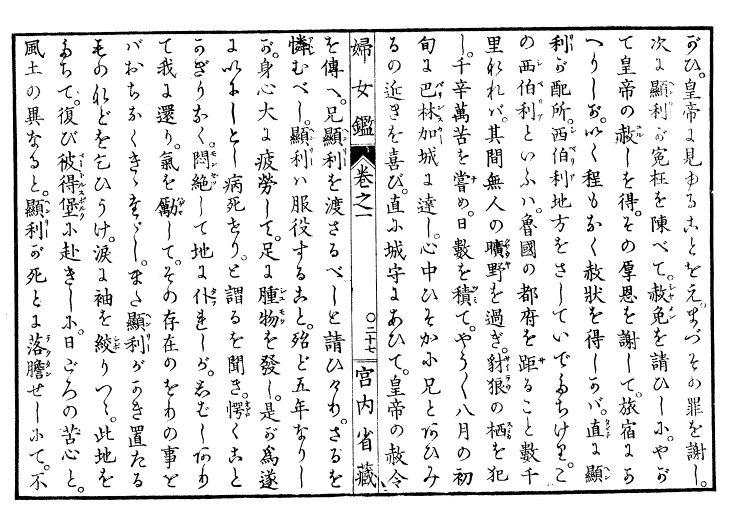 がひ。皇帝に見ゆることをえ。まづその罪を謝し。
次に顯利が寃枉を陳べて。赦免を請ひしに。やが
て皇帝の赦しを得。その厚恩を謝して。旅宿にか
へりしが。いく程もなく赦狀を得しかば。直に顯
利が配所。西伯利地方をさしていでたちけり。こ
の西伯利といふハ。魯國の都府を距ること數千
里なれバ。其間無人の曠野を過ぎ。豺狼の栖を犯
し。千辛萬苦を嘗め。日數を積て。やう〱八月の初
旬に巴林加城に達し。心中ひそかに兄とあひみ
るの近きを喜び。直に城守にあひて。皇帝の赦令
婦女鑑 卷之一 ○二十七 宮内省藏
を傳へ。兄顯利を渡さるべしと請ひけり。さるを
憐むべし。顯利ハ服役すること。殆ど五年なりし
が。身心大に疲勞して。足に腫物を發し。是が爲遂
にいにしとし病死せり。と謂るを聞き。愕くこと
かぎりなく。悶絶して地に仆れしが。しばしあり
て我に還り。氣を勵して。その存在のをりの事を
バおちなくきゝ。また顯利がかき置たる
ものなどを乞ひうけ。淚に袖を絞りつゝ。此地を
たちて。復び彼得堡に赴きしに。日ごろの苦心と。
風土の異なると。顯利が死とに落膽せしにて。不